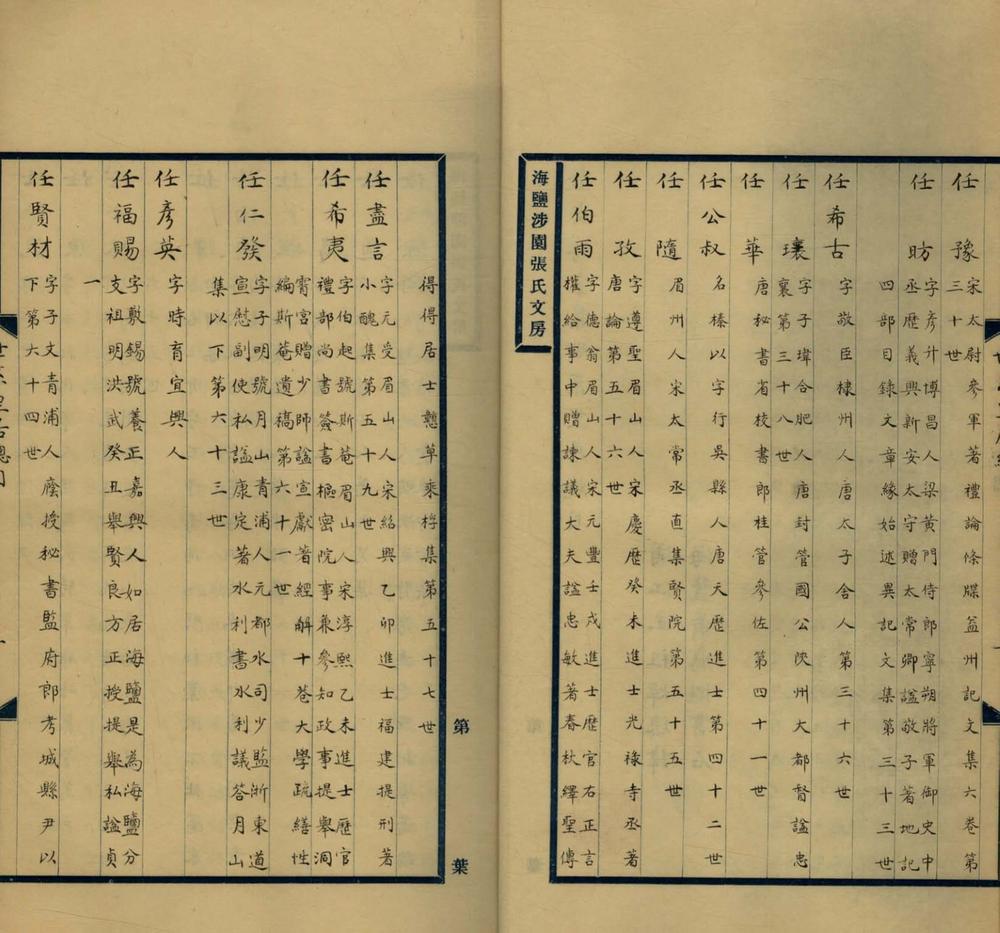 任豫 宋太尉參軍著禮論條牒益州記文集六卷第
三十世
任昉 字彥升博昌人梁黃門侍郎寧朔將軍御史中
丞歷義興新安太守贈太常卿諡敬子著地記
四部目錄文章緣始述異記文集第三十三世
任希古 字敬臣棣州人唐太子舍人第三十六世
任瓌 字子瑋合肥人唐封管國公陝州大都督諡忠
襄第三十八世
任華 唐秘書省校書郎桂管參佐第四十一世
任公叔 名榛以字行吳縣人唐天歷進士第四十二世
任隨 眉州人宋太常丞直集賢院第五十五世
任孜 字遵聖眉山人宋慶歷癸未進士光祿寺丞著
唐論第五十六世
任伯雨 字德翁眉山人宋元豐壬戌進士歷官右正言
權給事中贈諫議大夫諡忠敏著春秋繹聖傳
海鹽涉園張氏文房
第 葉
得得居士戇草乘桴集第五十七世
任盡言 字元受眉山人宋紹興乙卯進士福建提刑著
小醜集第五十九世
任希夷 字伯起號斯菴眉山人宋淳熙乙未進士歷官
禮部尚書簽書樞密院事兼參知政事提舉洞
霄宮贈少師諡宣獻著經解十卷大學疏繕性
編斯菴遺稿第六十一世
任仁發 字子明號月山青浦人元都水司少監浙東道
宣慰副使私諡康定著水利書水利議答月山
集以下第六十三世
任彥英 字時育宜興人
任福賜 字敷錫號養正嘉興人如居海鹽是為海鹽分
支祖明洪武癸丑舉賢良方正授提舉私諡貞
一
任賢材 字子文青浦人廕授秘書監府郎考城縣尹以
下第六十四世